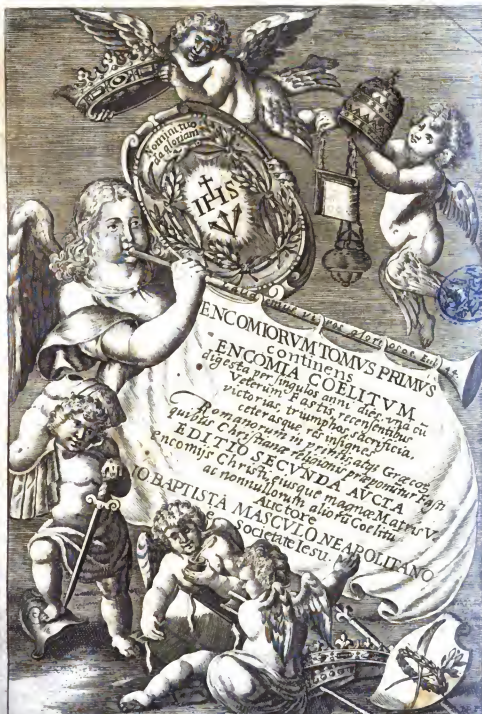 Nomini tuo
da gloriam
IHS
Laudemus viros gloriosos. Eccli. 44.
ENCOMIORVM TOMVS PRIMVS
continens
ENCOMIA COELITVM
digesta per singulos anni dies, vna cū
Veterum Fastis recensentibus
victorias, triumphos, sacrificia,
ceterasque res insignes
Romanorum in primis, atqȝ Græcor.
quibus Christianæ religionis præponitur Fasti
EDITIO SECVNDA AVCTA
encomijs Christi, eiusque magnæ Matris V.
ac nonnullorum aliorū Coelitū
Auctore
IO BAPTISTA MASCVLO NEAPOLITANO
Societate Iesu.